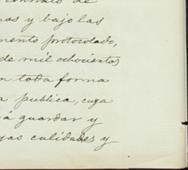 contrato de
nas y bajo las
mento protocolado,
de mil ochocientos
en toda forma
a publica, cuya
á guardar y
jas calidades y